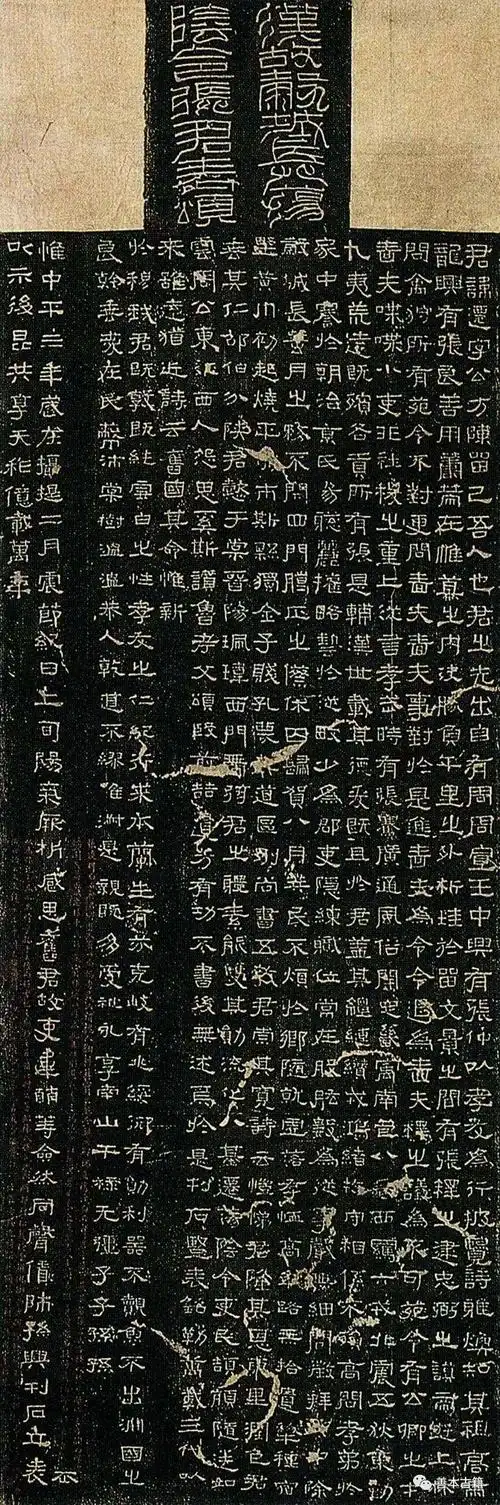 漢故穀城長蕩
陰令張君表頌
君諱遷字公方陳留己吾人也君之先出自有周周宣王中興有張仲以孝友為行披覽詩雅煥知其祖高帝
龍興有張良善用籌策在帷幕之內決勝負千里之外析珪於留文景之間有張釋之建忠弼之謨帝遊上林
問禽狩所有苑令不對更問嗇夫嗇夫事對於是進嗇夫為令令退為嗇夫釋之議為不可苑令有公卿之才
嗇夫喋喋小吏非社稷之重上從言孝武時有張騫廣通風俗開定畿寓南苞八蠻西羈六戎北震五狄東勤
九夷荒遠既殯各貢所有張是輔漢世載其德爰既且於君蓋其繵縺纘戎鴻緒牧守相係不殞高問孝弟於
家中謇於朝治京氏易聰麗權略藝於從畋少為郡吏隱練職位常在股肱數為從事聲無細聞徵拜郎中除
穀城長蠶月之務不閉四門臘正之祭休囚歸賀八月筭民不煩於鄉隨就虛落存恤高年路無拾遺犁種宿
野黃巾初起燒平城市斯縣獨全子賤孔蔑其道區別尚書五教君崇其寬詩云愷悌君隆其恩東里潤色君
垂其仁邵伯分陝君懿于棠晉陽珮瑋西門帶弦君之體素能雙其勛流化八基遷蕩陰令吏民頡頏隨送如
雲周公東征西人怨思奚斯讚魯考父頌殷前喆遺芳有功不書後無述焉於是刊石豎表銘勒萬載三代以
來雖遠猶近詩云舊國其命惟新
於穆我君既敦既純雪白之性孝友之仁紀行求本蘭生有芬克岐有兆綏御有勛利器不覿魚不出淵國之
良幹垂愛在民蔽沛棠樹溫溫恭人乾道不繆唯淑是親既多受祉永享南山干祿無疆子子孫孫
惟中平三年歲在攝提二月震節紀日上旬陽氣厥析感思舊君故吏韋萌等僉然同聲賃師孫興刊石立表
以示後昆共享天祚億載萬年
善本古籍